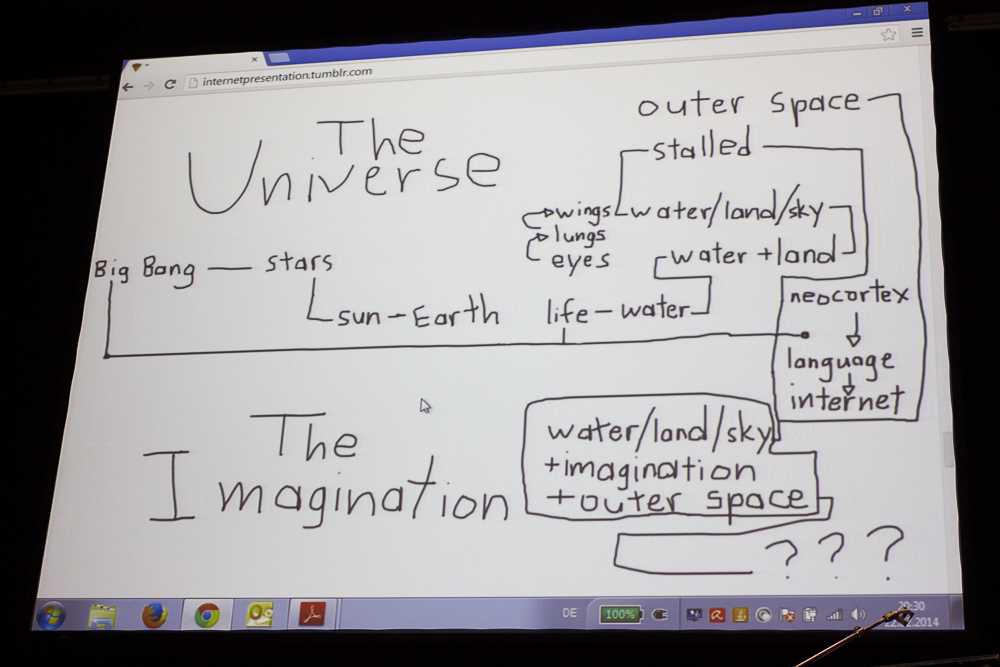 internetpresentation.tumblr.com
The
Universe
outer space
stalled
wings water/land/sky
lungs
eyes
water + land
Big Bang — stars
sun – Earth
life – water
neocortex
language
internet
The
Imagination
water/land/sky
+imagination
+outer space
? ? ?
DE
100%